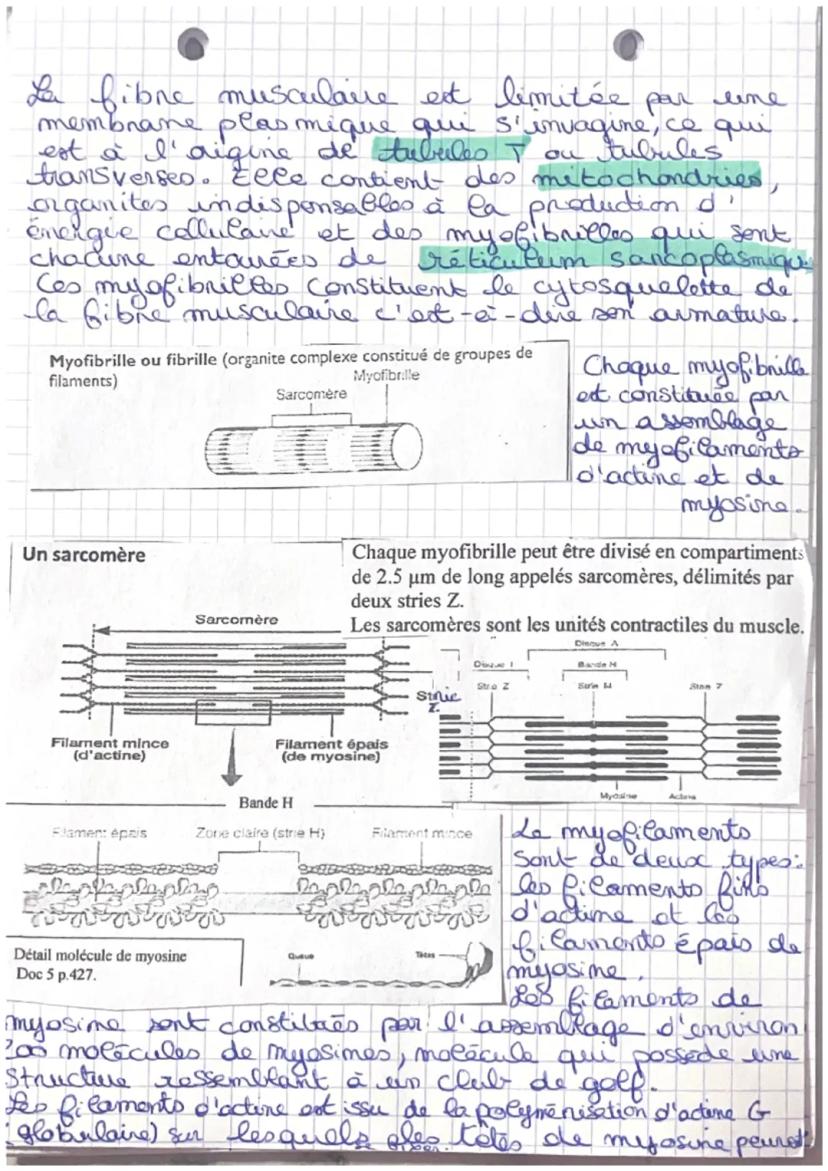 La fibre musculaire est limitée par une
membrane plasmique qui s'invagine, ce qui
est à l'origine de tubules T ou tubules
transverses. Elle contient des mitochondries,
organites indispensables à la production d'
énergie cellulaire et des myofibrilles qui sont
chacune entourées de réticulum sarcoplasmique
Ces myofibrilles constituent le cytosquelette de
la fibre musculaire c'est-à-dire son armature.
Myofibrille ou fibrille (organite complexe constitué de groupes de
filaments)
Myofibrille
Sarcomère
Chaque myofibrille
est constituée par
un assemblage
de myofilaments
d'actine et de
myosine.
Un sarcomère
Chaque myofibrille peut être divisé en compartiments
de 2.5 µm de long appelés sarcomères, délimités par
deux stries Z.
Les sarcomères sont les unités contractiles du muscle.
Sarcomère
Strie
Z.
Filament mince
(d'actine)
Filament épais
(de myosine)
Bande H
Disque A
Disque I
Bande H
Strie Z
Strie M
Strie Z
Myosine
Actine
Filament épais
Zone claire (strie H)
Filament mince
Détail molécule de myosine
Doc 5 p.427.
Queue
Têtes
Le myofilaments
sont de deux types:
les filaments fins
d'actine et les
filaments épais de
myosine.
Les filaments de
myosine sont constitués par l'assemblage d'environ
200 molécules de myosines, molécule qui possède une
structure ressemblant à un club de golf.
Les filaments d'actine est issu de la polymérisation d'actine G
(globulaire) sur lesquels les têtes de myosine peuvent